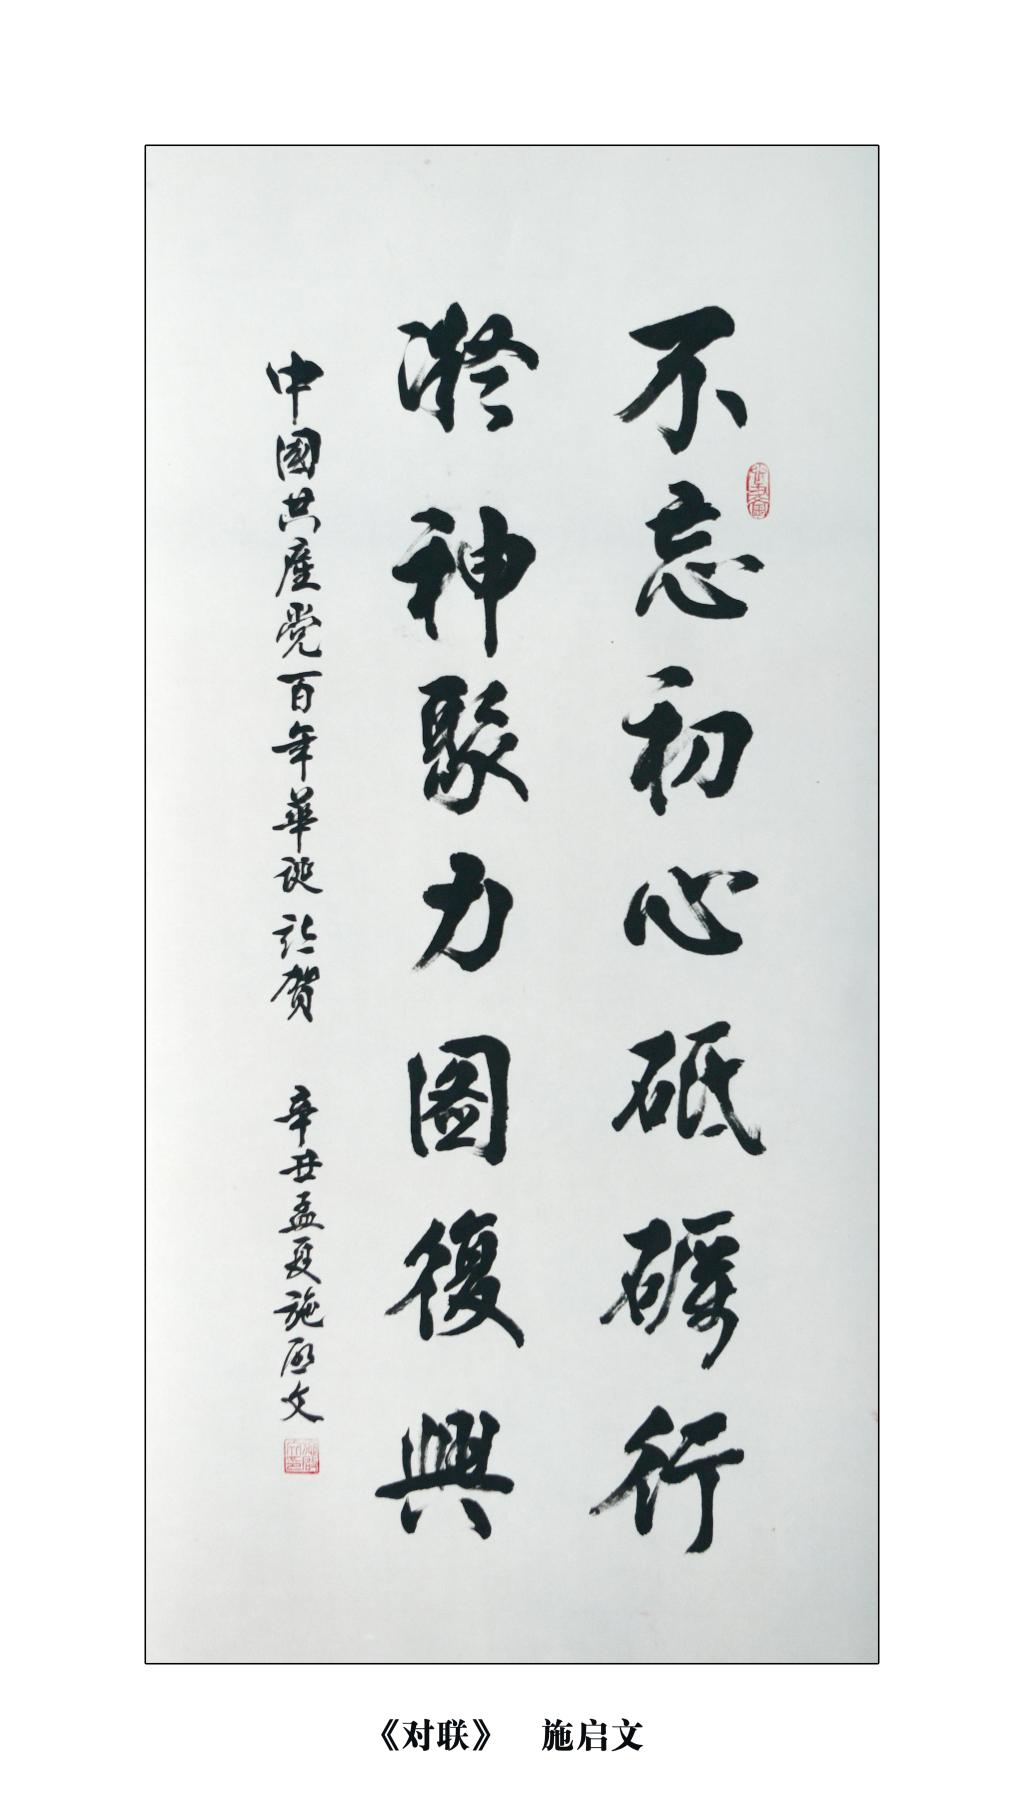 不忘初心砥砺行
凝神聚力圖復興
中國共產党百年華诞誌贺 辛丑孟夏施启文
《对联》 施启文